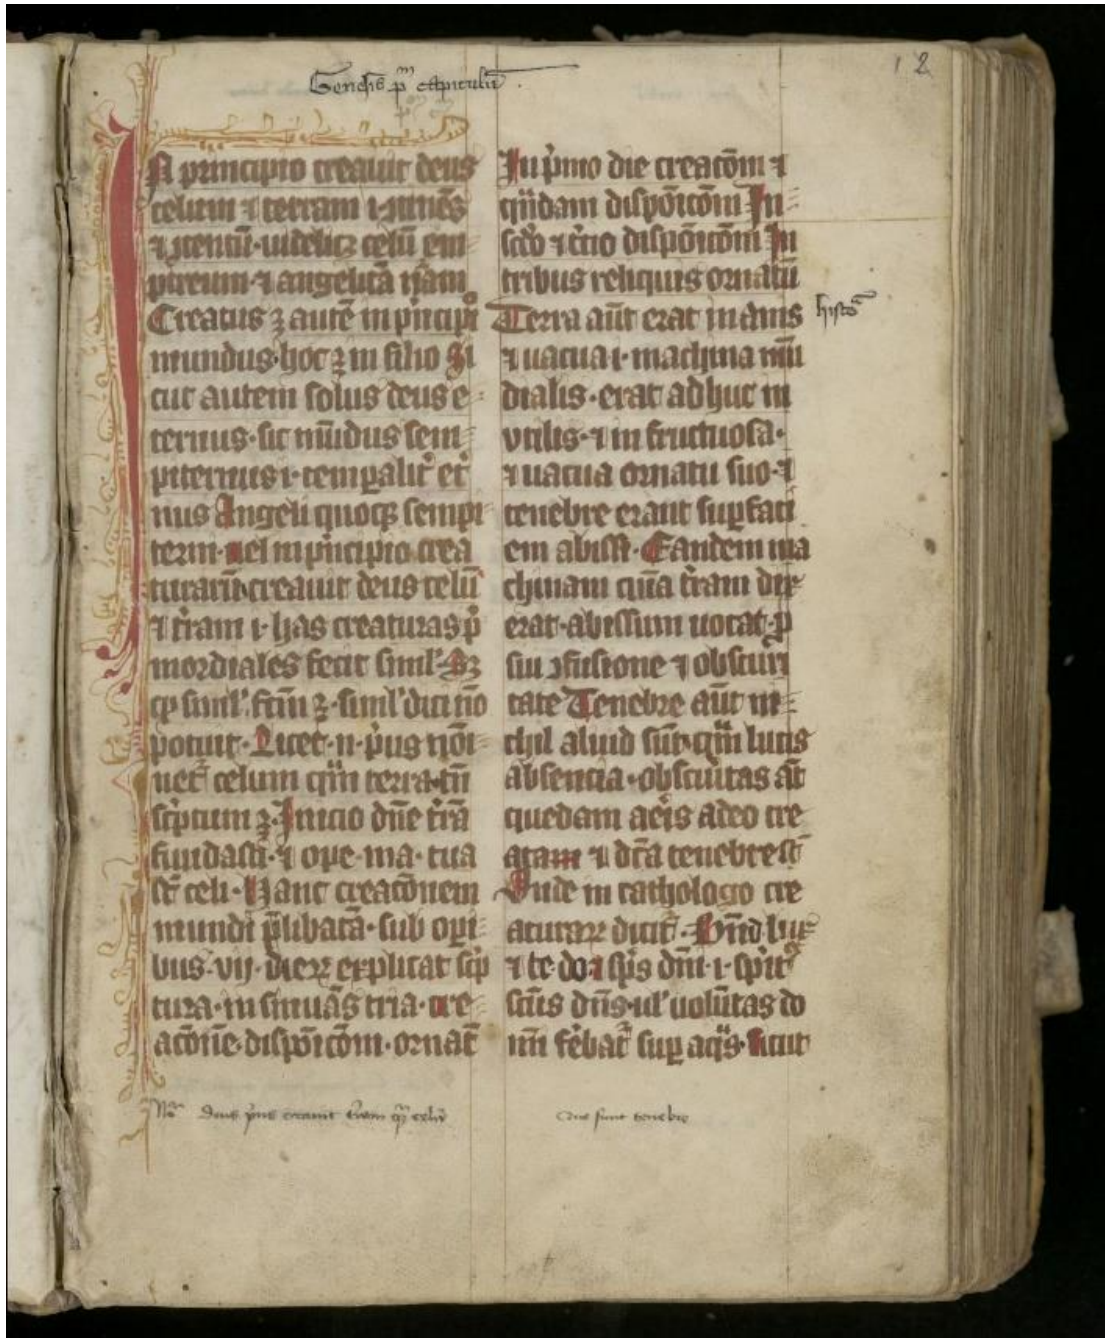 Genesis p͞m capitulu͞
12
IN principio creauit deus
celum ⁊ terram i· ⁊tine͞s
⁊ ⁊tentu͞· uidelicꝫ celu͞ em
pireum· ⁊ angelica͞ n͞am
Creatus ꝫ aute͞ in p͛ncipio
mundus· hoc ꝫ in filio Si
cut autem solus deus e-
ternus· sic mu͞dus sem-
piternus i· temꝑalit͛ et͛
nus Angeli quoqꝫ sempi
terni· uel in p͛ncipio crea
turaru͞ creauit deus celu͞
⁊ t͛ram i· has creaturas p͛
mordiales fecit simul͛· Sꝫ
qꝫ simul͛· fc͞m ꝫ· simul͛ dici no͞
potuit· Licet· n· p͛us no͞i-
net͛ celum qͣm terra· tn͞
sc͛ptum ꝫ· Inicio dn͞e t͛ra͞
fundasti· ⁊ oꝑe· ma· tua
st͞ celi· Hanc creaco͞nem
mundi p͞libata͞· sub oꝑi-
bus· vij· dieꝝ explicat sc͛p
tura· insinua͞s tria· cre-
aco͞ne· dispo͞ico͞m· ornat͛
In p͛mo die creaco͞m ⁊
qͣdam dispo͞ico͞m In-
sc͞do ⁊ t͛cio dispo͞ico͞m In
tribus reliquis ornatu͞
Terra au͞t erat inanis
histo͞
⁊ uacua i· machina mu͞
dialis· erat adhuc in
vtilis· ⁊ infructuosa·
⁊ uacua ornatu suo· ⁊
tenebre erant suꝑ faci
em abissi· Eandem ma
chinam qua͞ t͛ram dix-
erat· abissum uocat· ꝓ
sui ꝯfusione ⁊ obscuri
tate Tenebre au͞t ni-
chil aluid su͞t· qͣm lucis
absencia· obscu͛itas a͞t
quedam ae͛is adeo cre
atam ⁊ dc͞a tenebre st͞
Unde in cathologo cre
aturaꝝ dicit͛· Bn͞d lux
⁊ te· do· ⁊ sp͞s dn͞i· i· sp͛it͛
sc͞us dn͞s· ul͛ uolu͞tas do
mi͞ fe͛bat͛ suꝑ aqͣs· sicut
No͞ deus p͛us creauit t͛ram qͣm celu͞
Que sunt tenebre